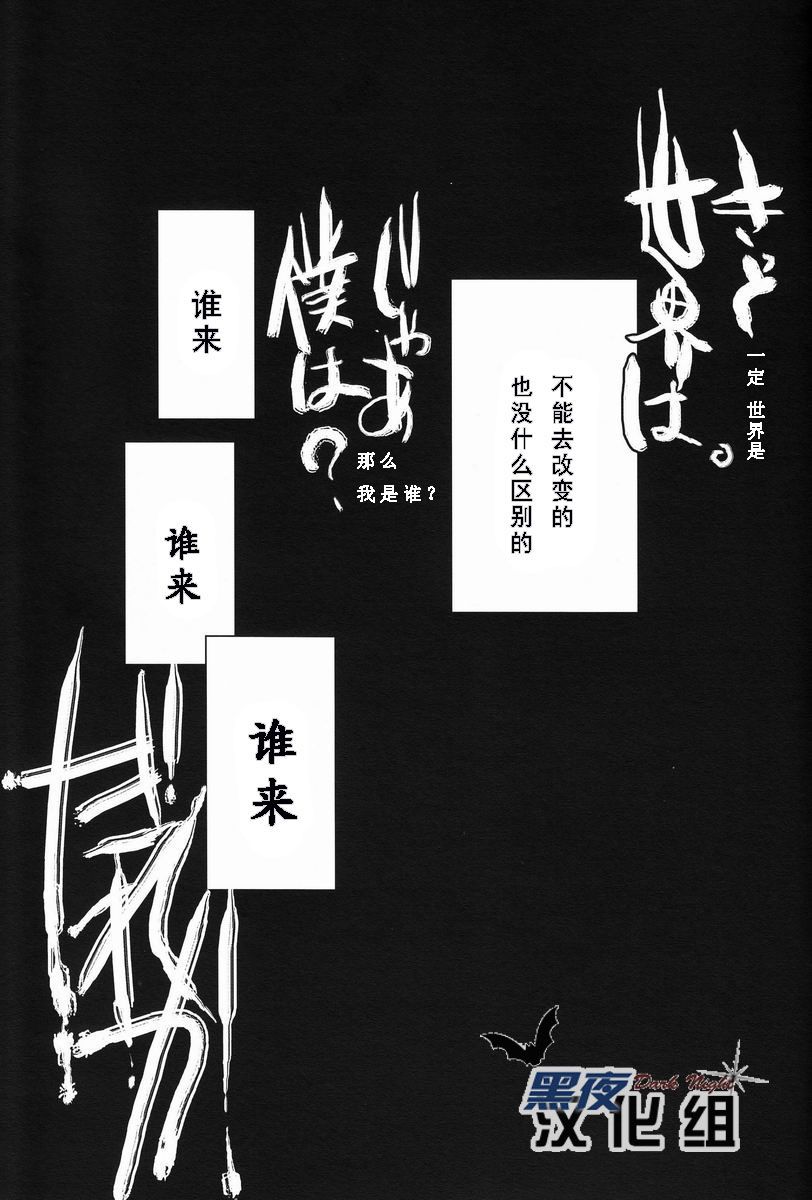 きっと
世界は。
一定 世界是
不能去改变的
也没什么区别的
じゃあ
僕は？
那么
我是谁？
谁来
谁来
谁来
だれか
Dark Night
黑夜
汉化组